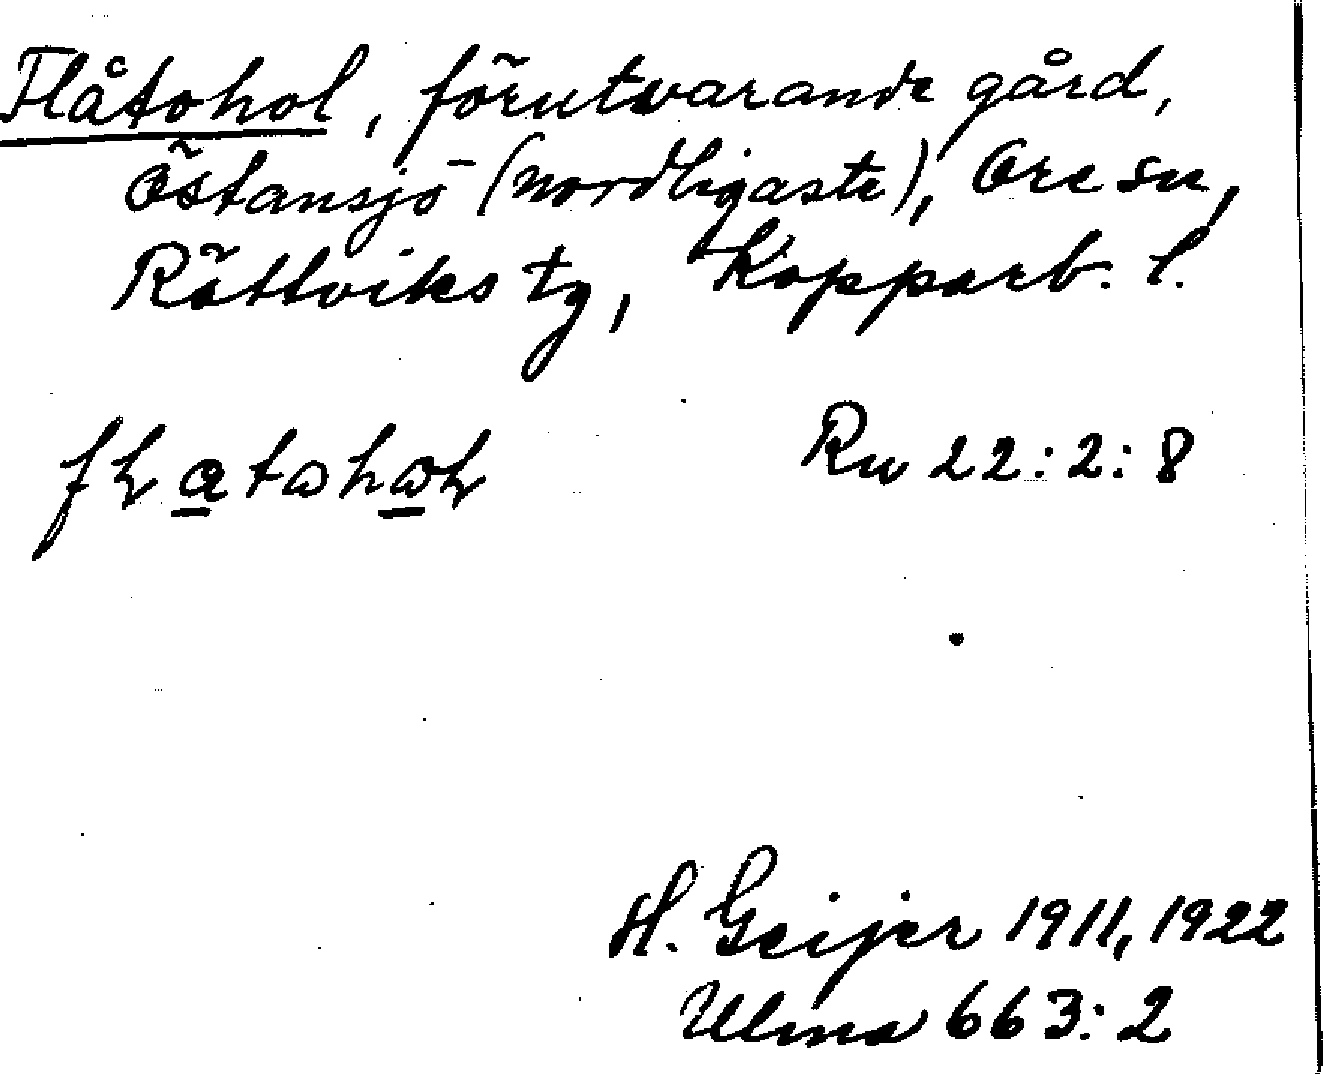 Flåtohol, förutvarande gård,
Östansjö (nordligaste), Ore sn,
Rättviks tg, Kopparb. l.
Ru 22:2:8
H. Geijer 1911, 1922
Ulma 663:2